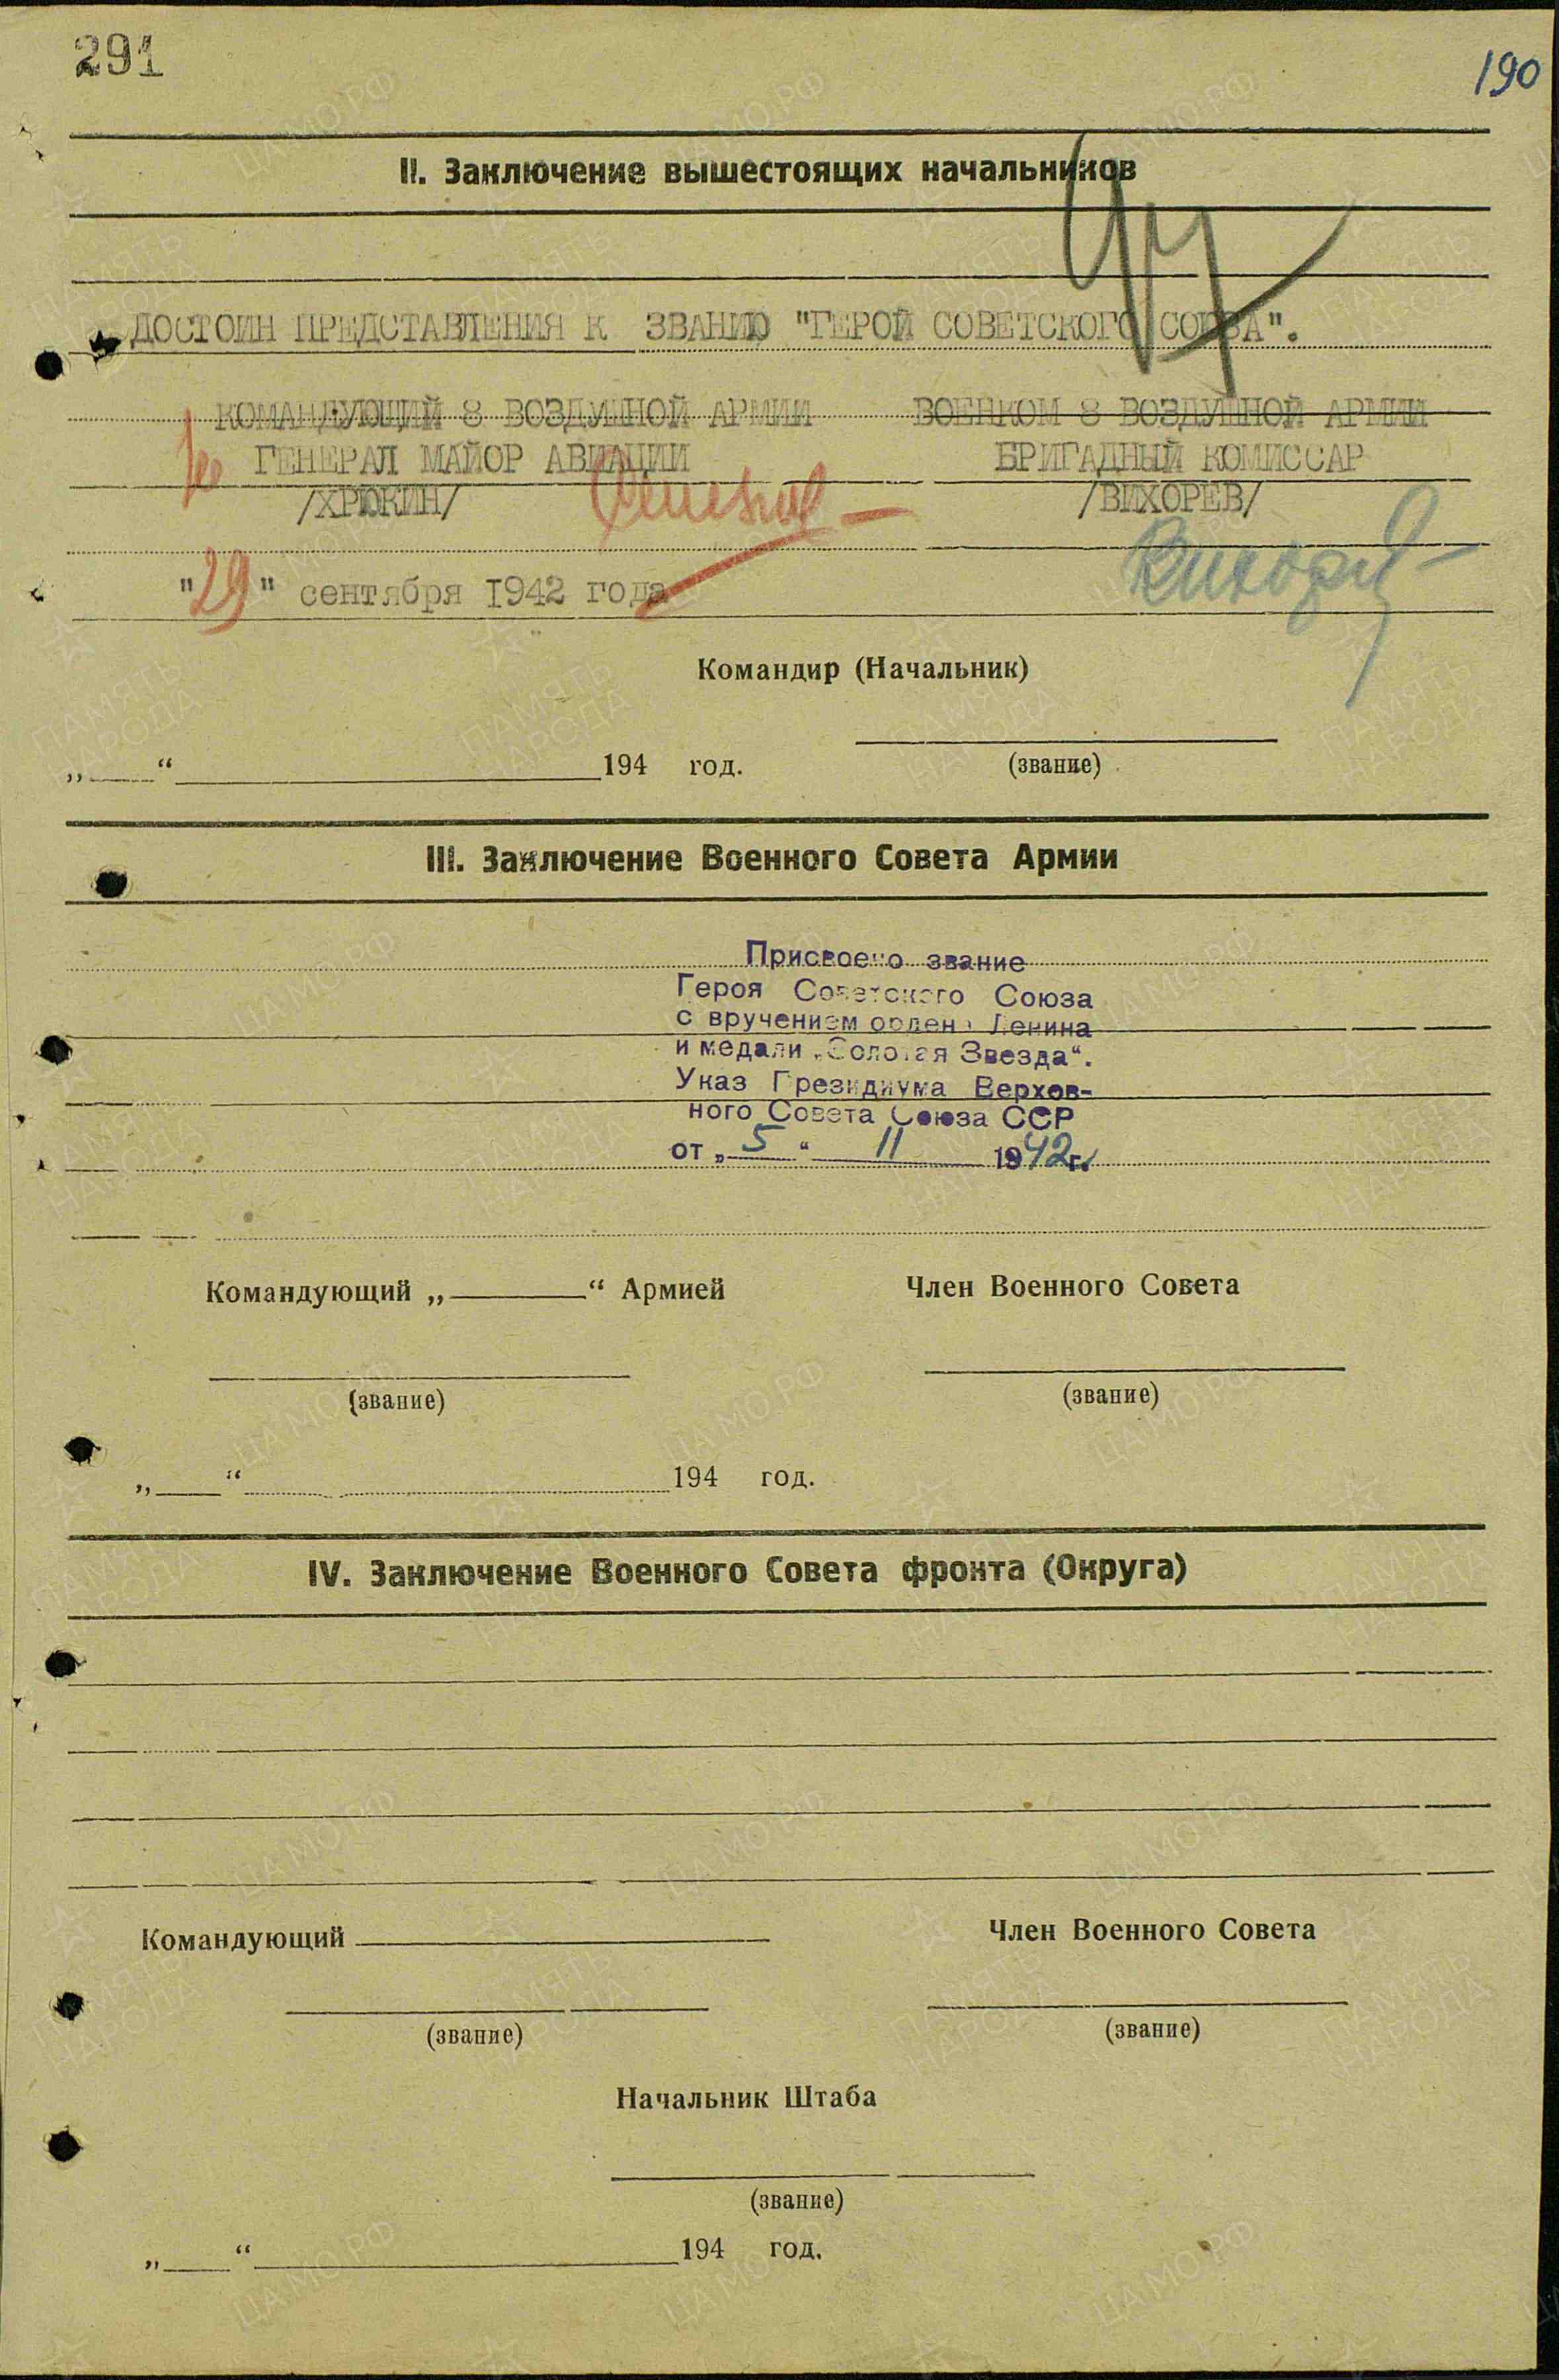 291
190
II. Заключение вышестоящих начальников
ДОСТОИН ПРЕДСТАВЛЕНИЯ К ЗВАНИЮ "ГЕРОЙ СОВЕТСКОГО СОЮЗА".
КОМАНДУЮЩИЙ 8 ВОЗДУШНОЙ АРМИИ ВОЕНКОМ 8 ВОЗДУШНОЙ АРМИИ
ГЕНЕРАЛ МАЙОР АВИАЦИИ БРИГАДНЫЙ КОМИССАР
/ХРЮКИН/ /ВИХОРЕВ/
"29" сентября 1942 года
Командир (Начальник)
„ “ 194 год.
(звание)
III. Заключение Военного Совета Армии
Присвоено звание
Героя Советского Союза
с вручением ордена Ленина
и медали „Золотая Звезда“.
Указ Президиума Верхов-
ного Совета Союза ССР
от „ 5 “ 11 1942г.
Командующий „ “ Армией Член Военного Совета
(звание) (звание)
„ “ 194 год.
IV. Заключение Военного Совета фронта (Округа)
Командующий Член Военного Совета
(звание) (звание)
Начальник Штаба
(звание)
„ “ 194 год.